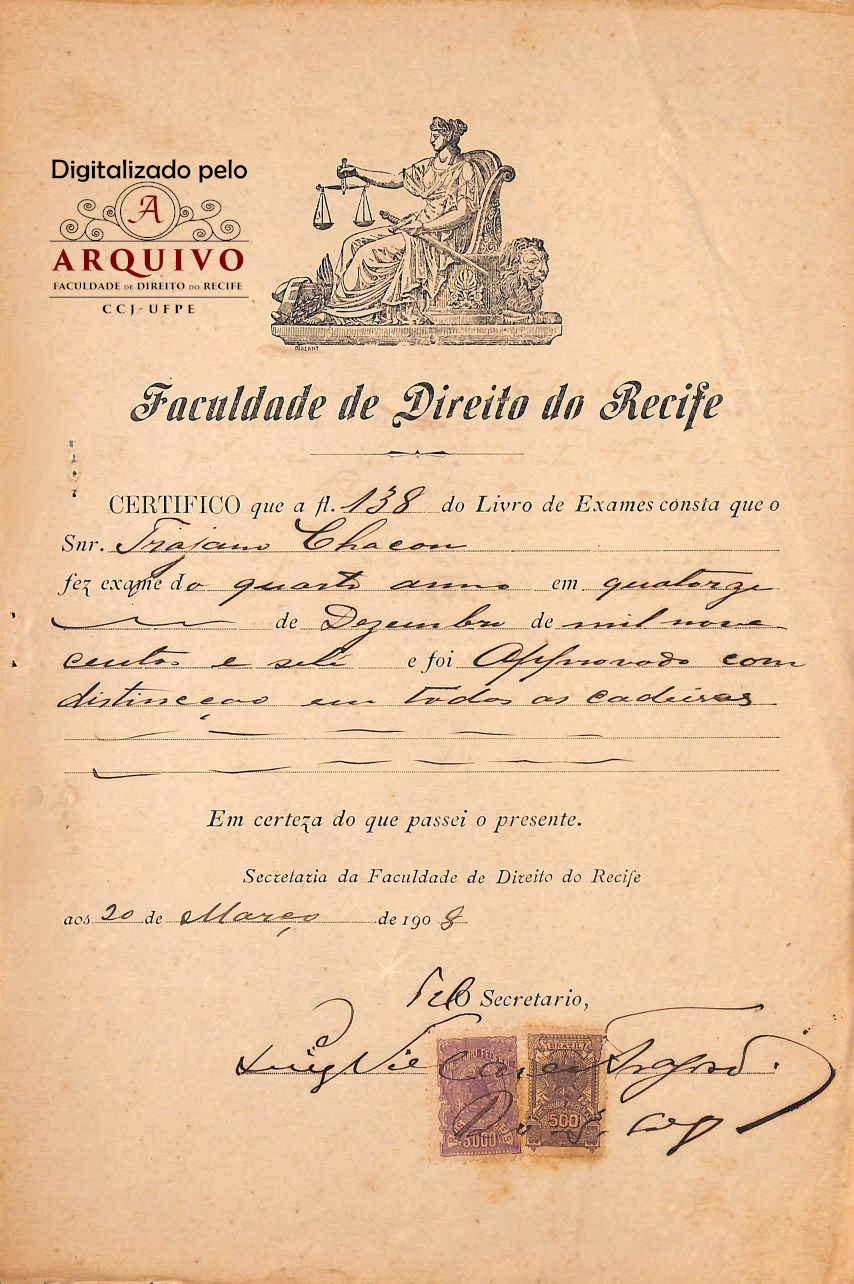 Digitalizado pelo
A
ARQUIVO
FACULDADE DE DIREITO DO RECIFE
CCJ-UFPE
Faculdade de Direito do Recife
CERTIFICO que a fl. 138 do Livro de Exames consta que o
Snr. Trajano Chacon
fez exame do quarto anno em quatorze
de Dezembro de mil nove
centos e sete e foi Approvado com
distincção em todas as cadeiras
Em certeza do que passei o presente.
Secretaria da Faculdade de Direito do Recife
aos 20 de Março de 1908
Pelo Secretario,
Luiz
BRAZIL
5000
500